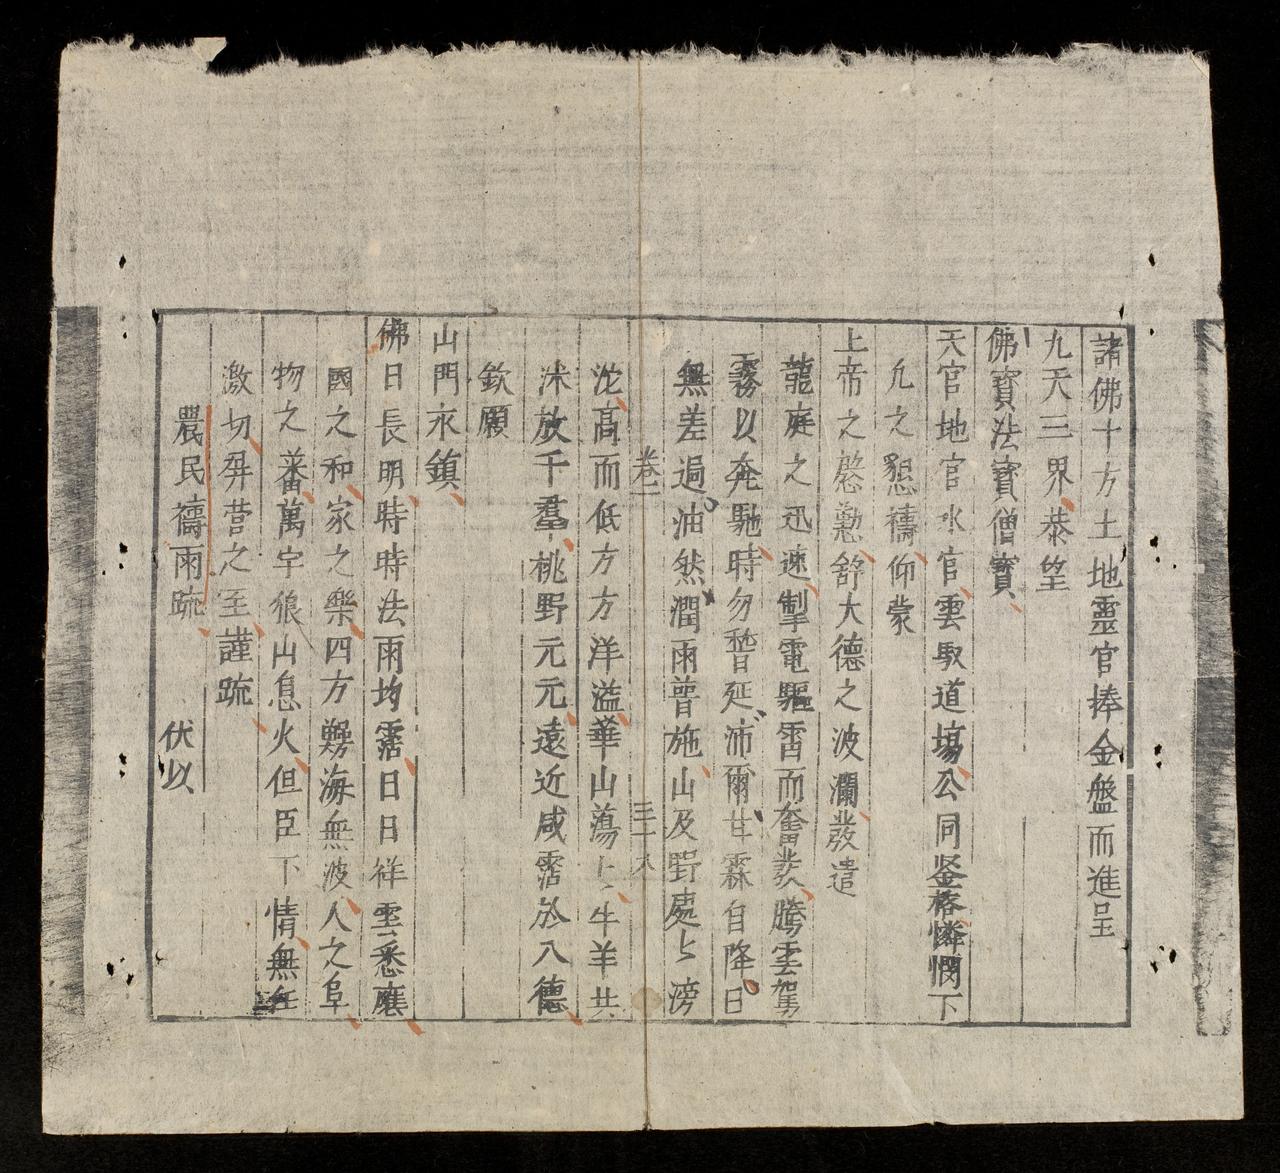 諸佛十方土地靈官捧金盤而進呈
九天三界恭望
佛寶法寶僧寶
天官地官水官雲馭道場公同鉴格憐憫下
凢之懇禱仰蒙
上帝之慇懃舒大德之波瀾發遣
龍庭之迅速掣電驅雷而奮發騰雲駕
霧以奔馳時勿暫延沛爾甘霖自降日
無差過油然潤雨普施山及野處〻滂
卷一
三十八
沱高而低方方洋溢華山蕩〻牛羊共
沫放千羣桃野元元遠近咸霑於八德
欽願
山門永鎮
佛日長明時時法雨均霑日日祥雲悉穰
國之和家之樂四方嬲海無波人之阜
物之蕃萬宇狼山息火但臣下情無任
激切屏營之至謹疏
農民禱雨疏
伏以